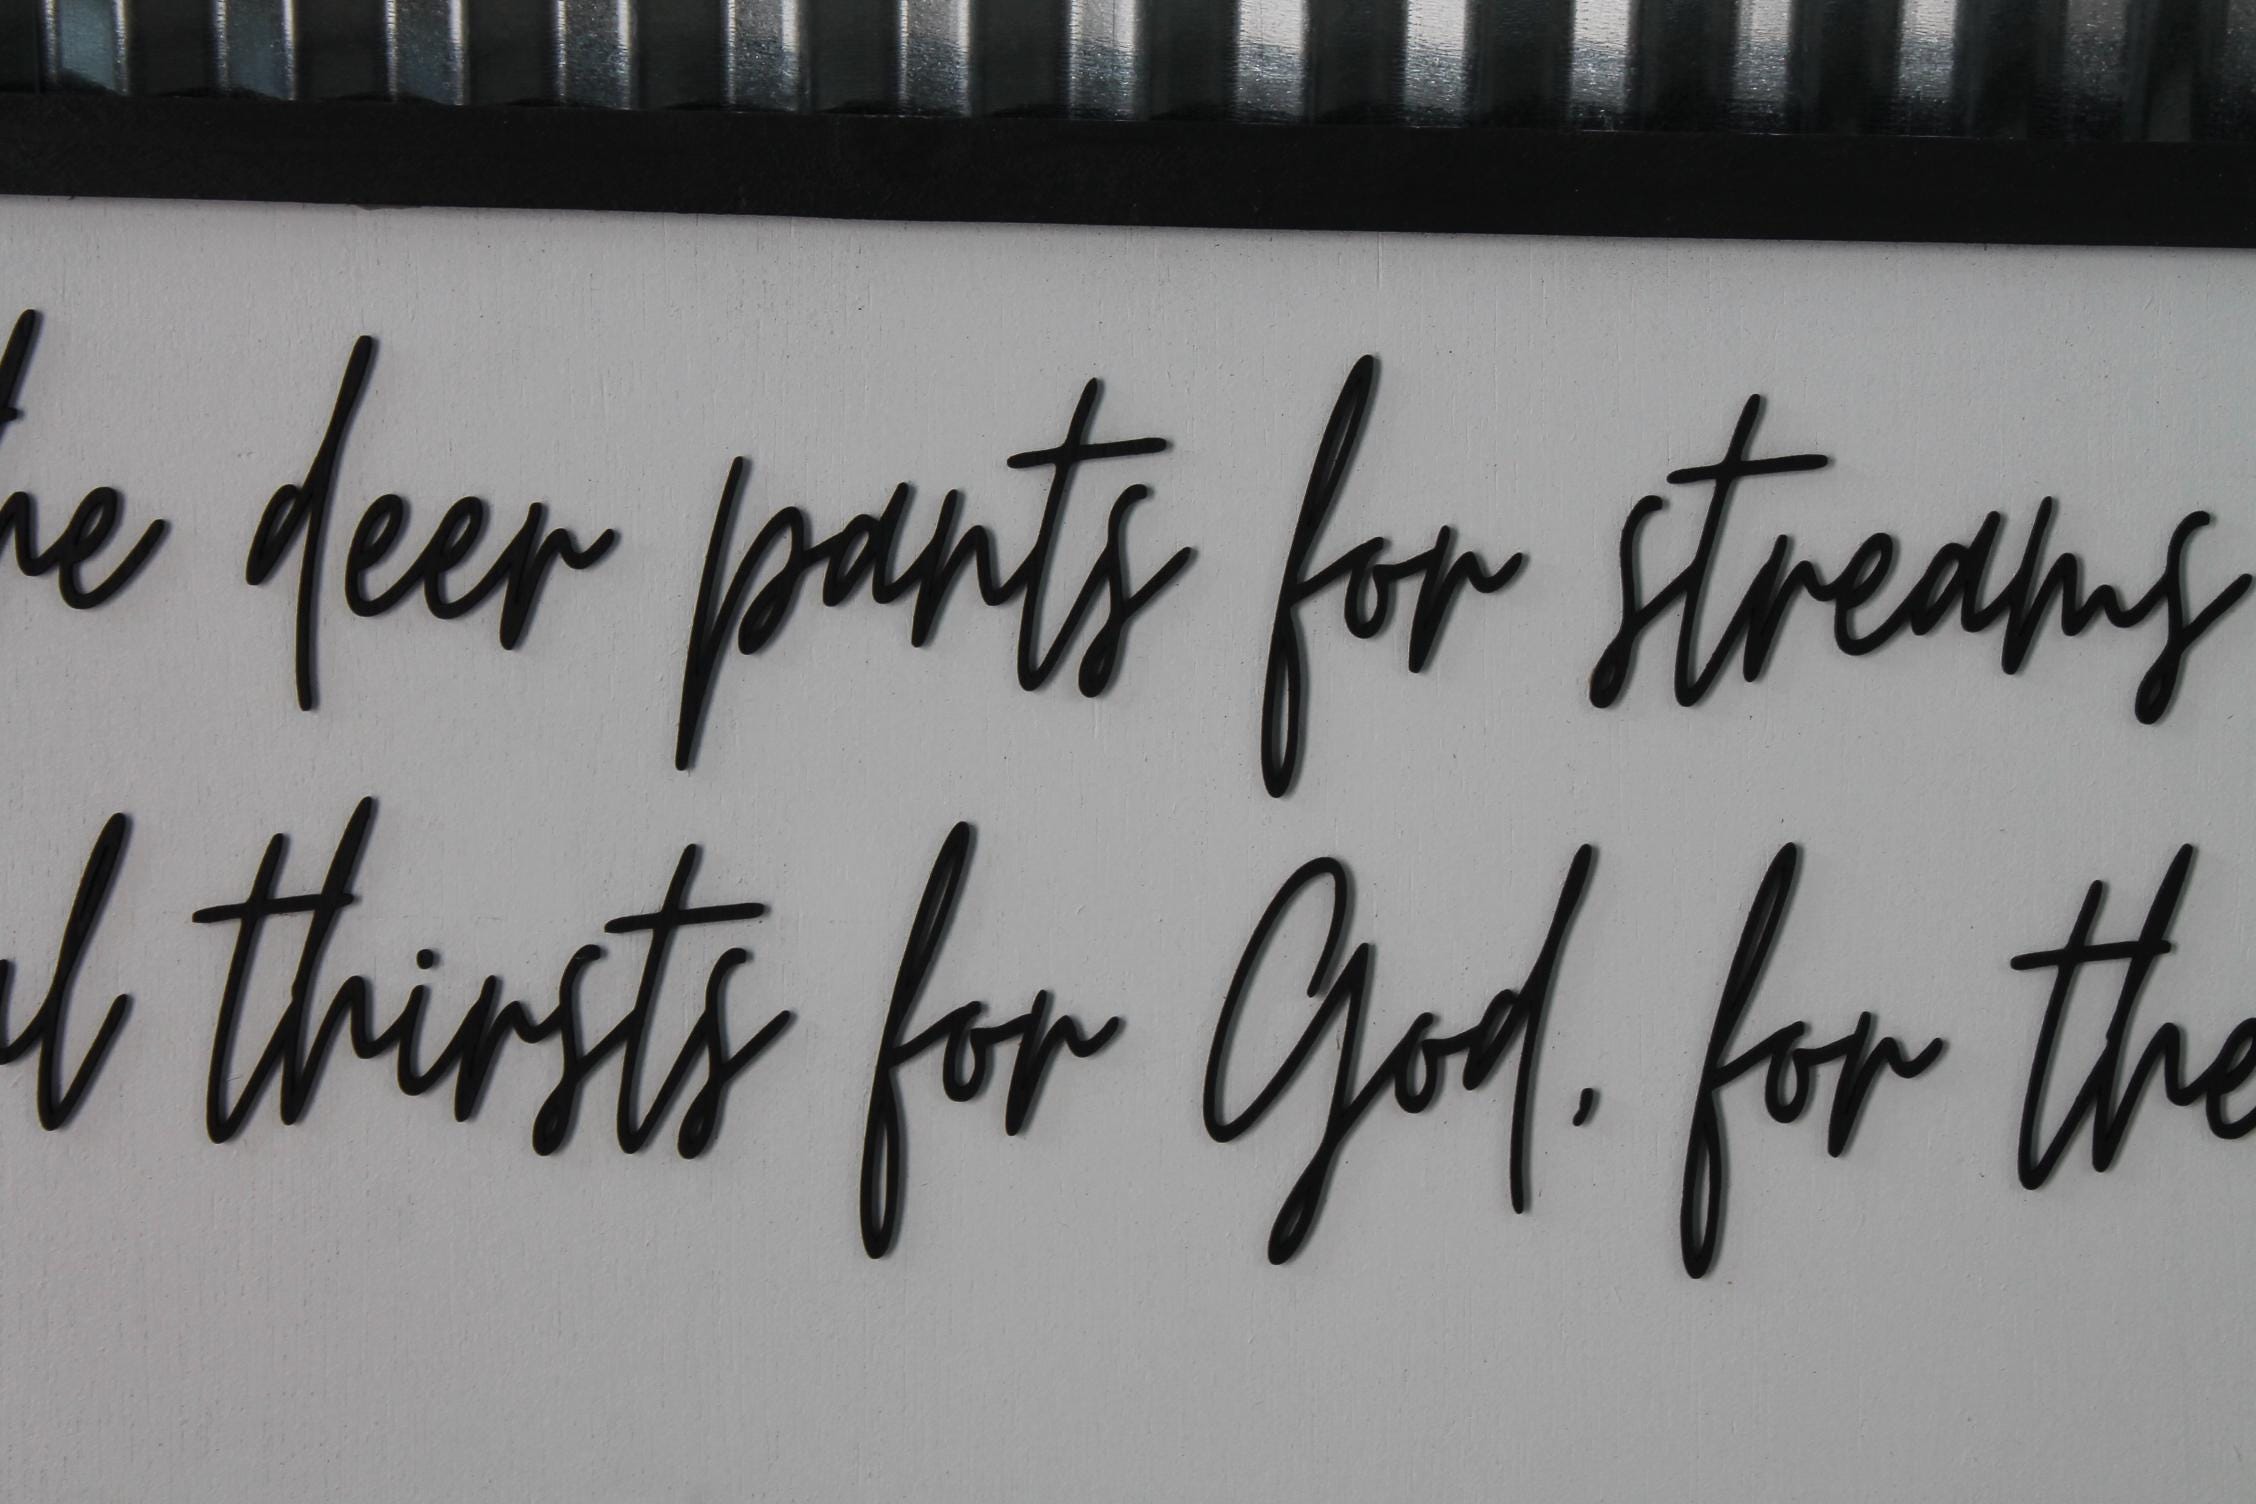 the deer pants for streams
ul thirsts for God, for the